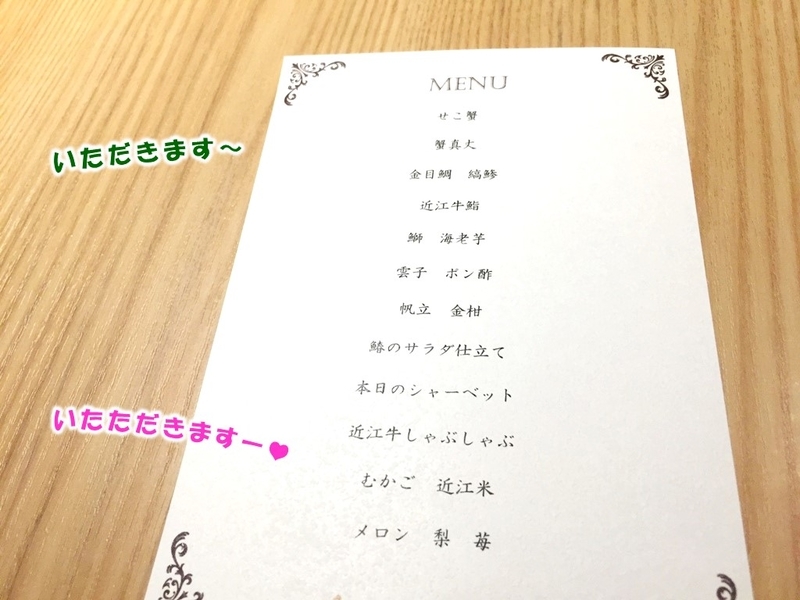 MENU
せこ蟹
蟹真丈
金目鯛　縞鯵
いただきます〜
近江牛鮨
鰤　海老芋
雲子　ポン酢
帆立　金柑
鰆のサラダ仕立て
本日のシャーベット
いたただきますー♥
近江牛しゃぶしゃぶ
むかご　近江米
メロン　梨　苺